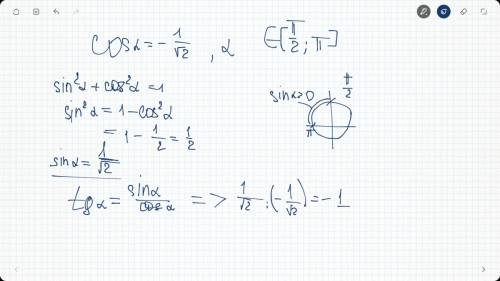 cosα = - 1/√2 , α ∈ [π/2 ; π]
sin²α + cos²α = 1
sin²α = 1 - cos²α
= 1 - 1/2 = 1/2
sinα = 1/√2
sinα > 0
π/2
π
tgα = sinα/cosα => 1/√2 : (- 1/√2) = - 1